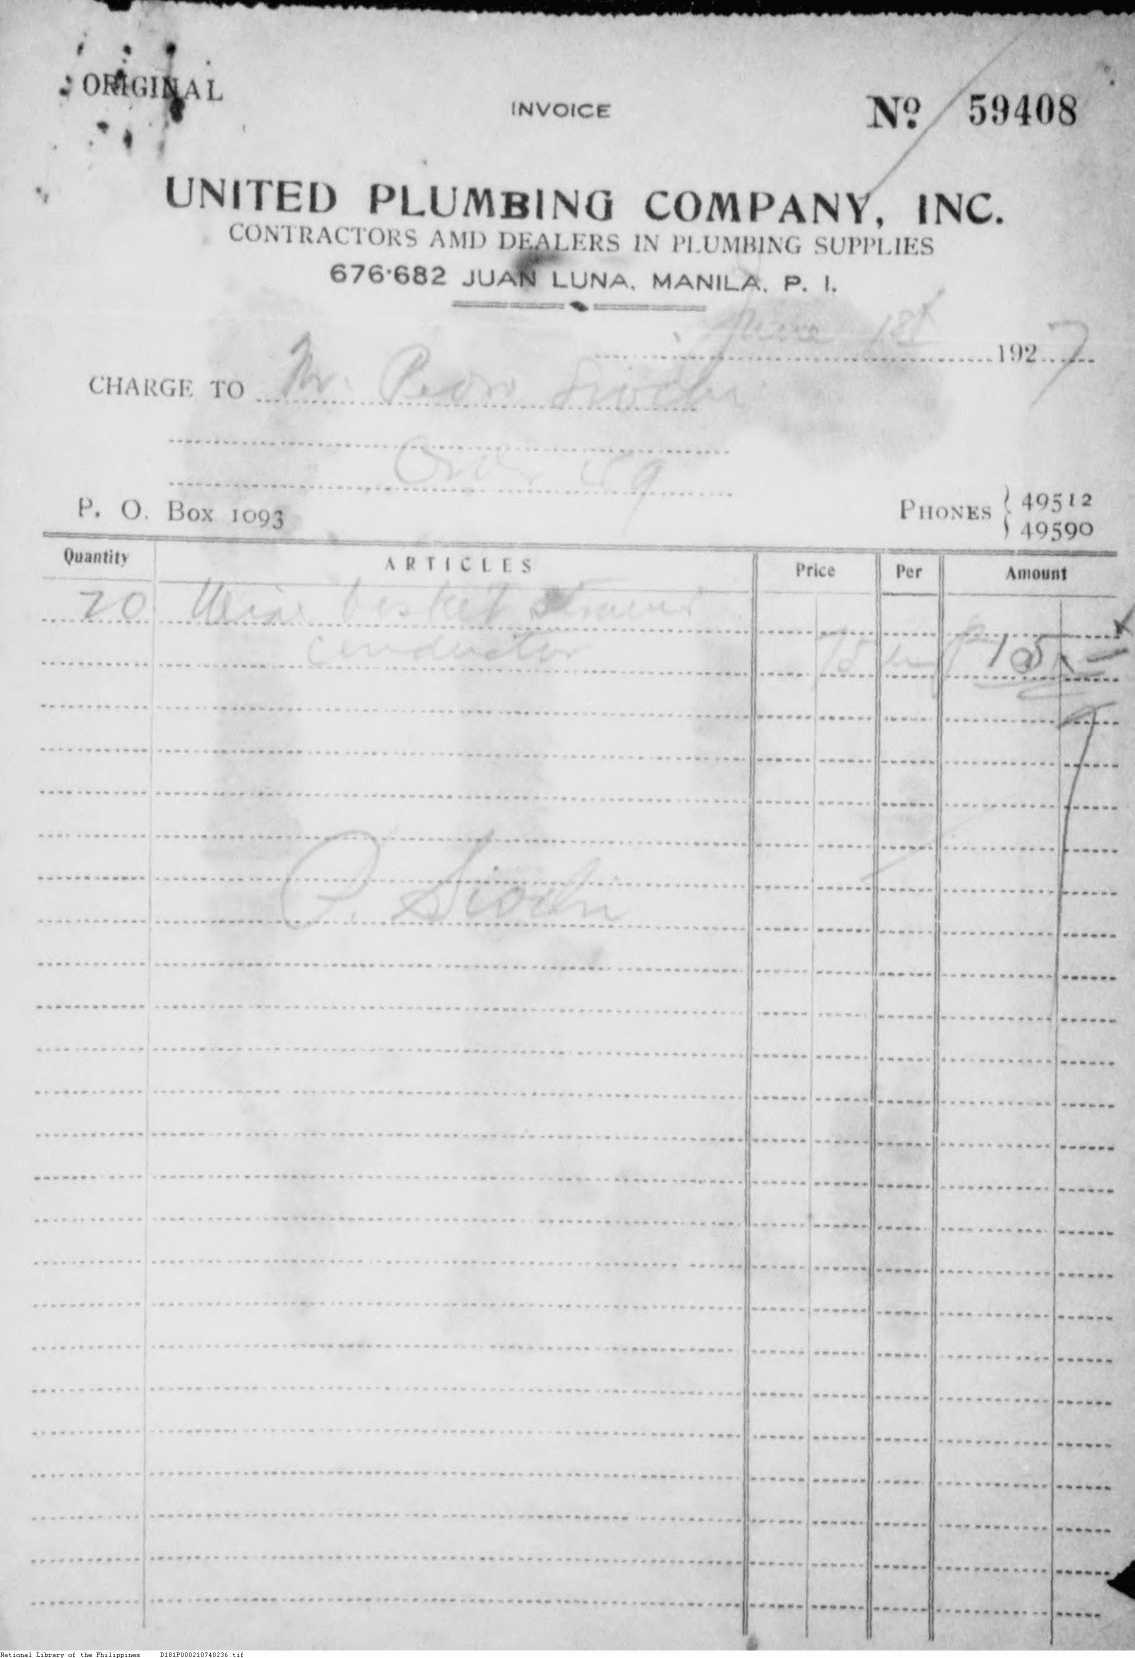 ORIGINAL
INVOICE
No. 59408
UNITED PLUMBING COMPANY, INC.
CONTRACTORS AMD DEALERS IN PLUMBING SUPPLIES
676-682 JUAN LUNA, MANILA, P. I.
June 1st 1927
CHARGE TO Mr. Pedro Siochi
Order 49
P. O. Box 1093
PHONES 49512
49590
Quantity ARTICLES Price Per Amount
70 Wire basket
conductor 105
P. Siochi
National Library of the Philippines D181P000210740236.tif